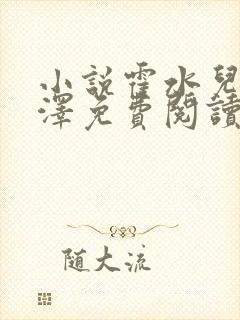 小說霍水兒
澤免費閱讀
随大流